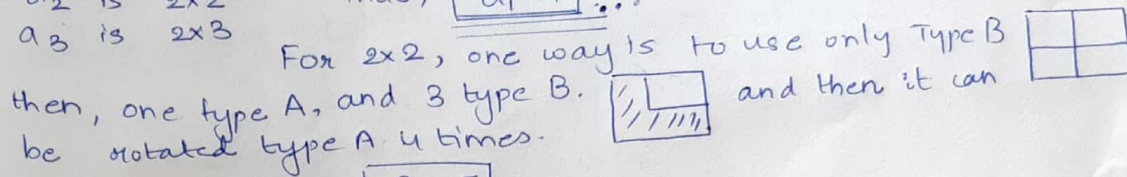 is 2x2
a3 is 2x3
For 2x2, one way is to use only Type B
then, one type A, and 3 type B. and then it can
be rotated type A 4 times.